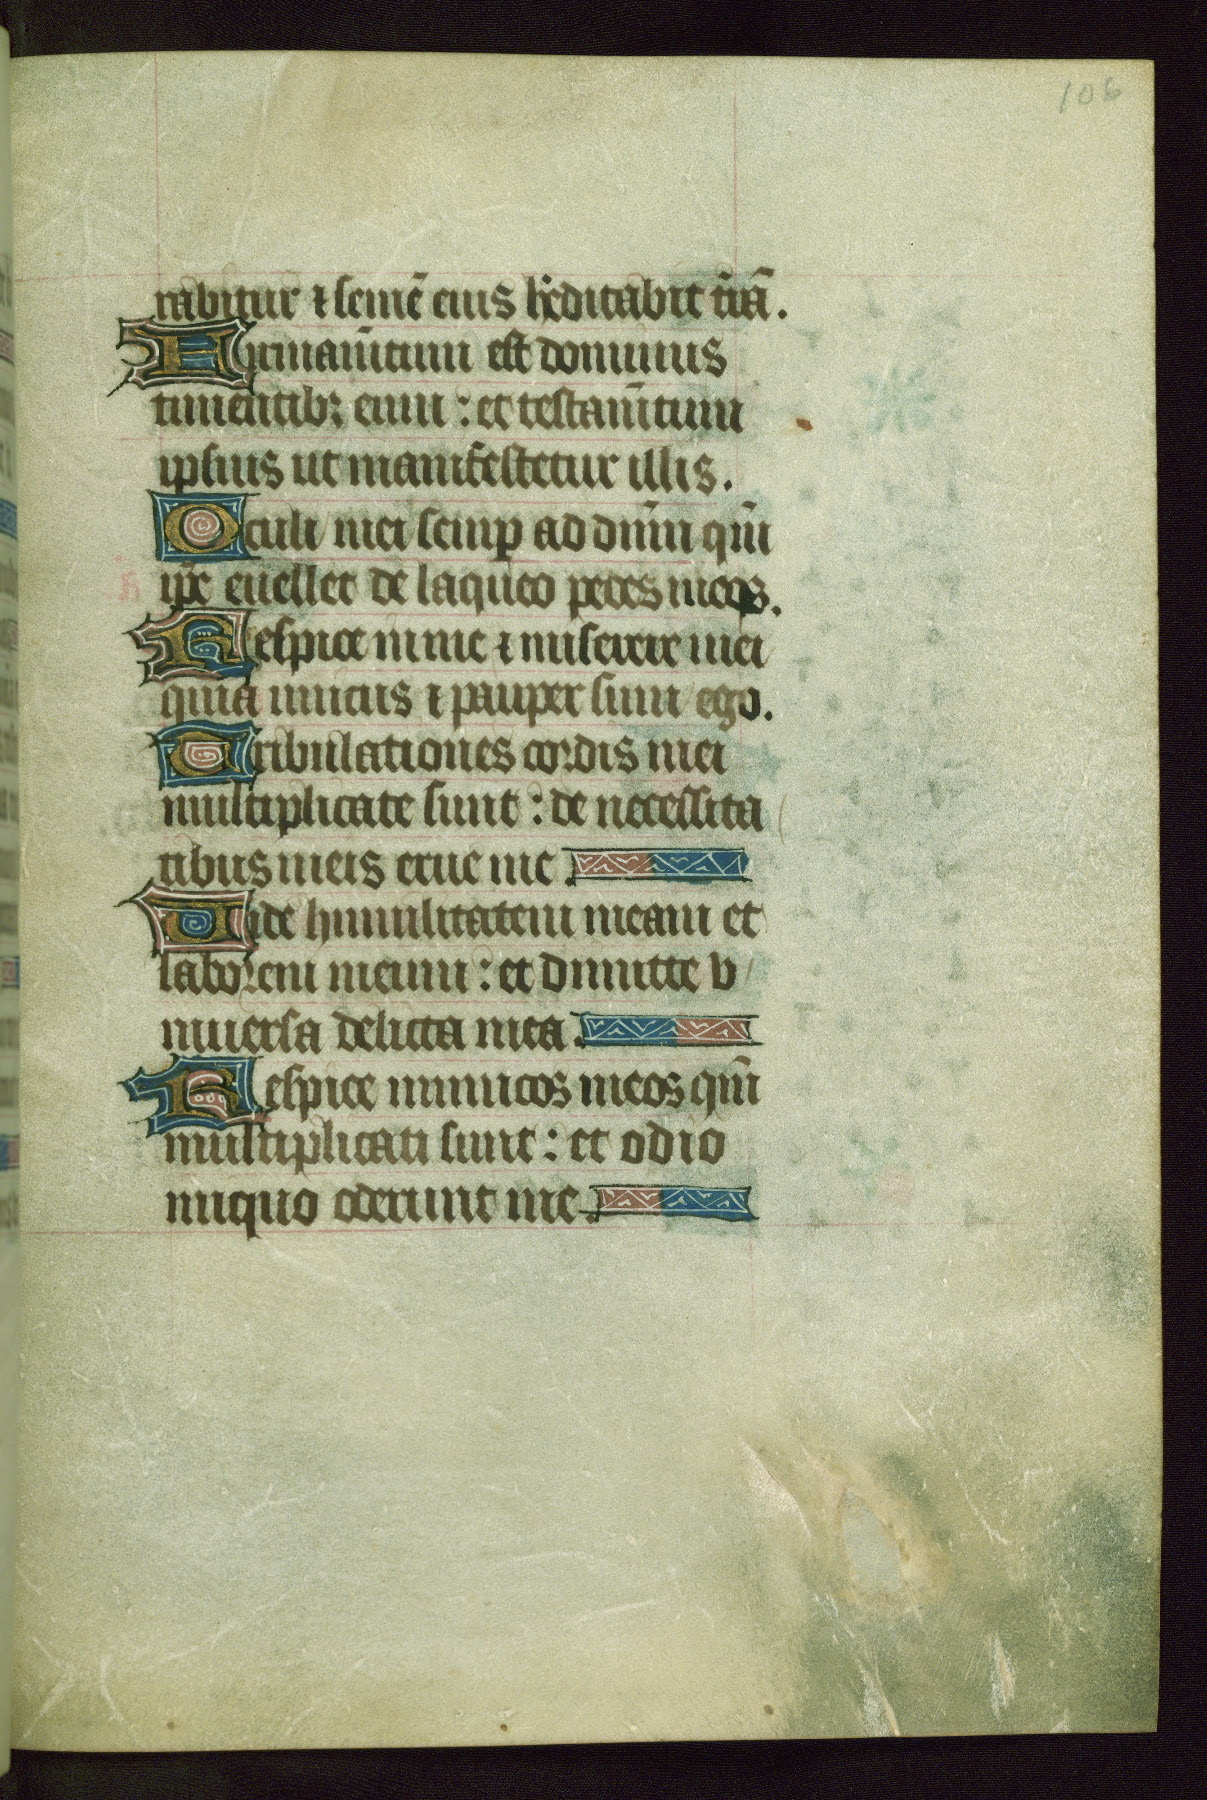 106
rabitur ⁊ semē eius h̄editabit t̄rā.
Firmam̄tum est dominus
timentibꝫ eum : et testam̄tum
ipsius ut manifestetur illis.
Oculi mei semꝑ ad dn̄m qm̄
ip̄e euellet de laqueo pedes meos.
Respice in me ⁊ miserere mei
quia unicus ⁊ pauper sum ego.
Tribulationes cordis mei
multiplicate sunt : de necessita
tibus meis erue me.
Uide humilitatem meam et
laborem meum : et dimitte v
niuersa delicta mea.
Respice inimicos meos qm̄
multiplicati sunt : et odio
iniquo oderunt me.